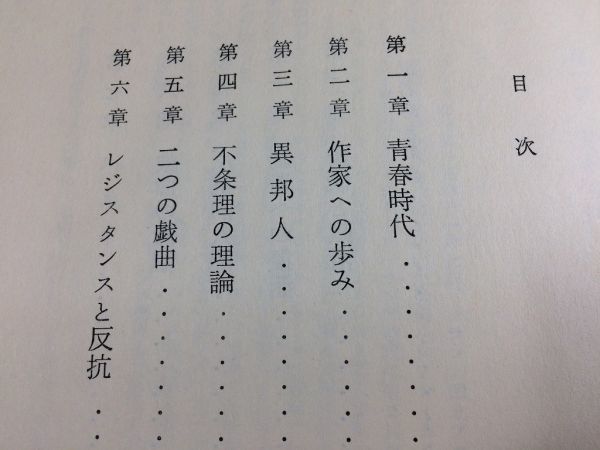 目次
第一章 青春時代・・・・・・・・
第二章 作家への歩み・・・・・・
第三章 異邦人・・・・・・・・
第四章 不条理の理論・・・・・・
第五章 二つの戯曲・・・・・・・
第六章 レジスタンスと反抗・・